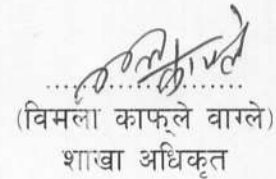 (विमला काफ्ले वाग्ले)
शाखा अधिकृत